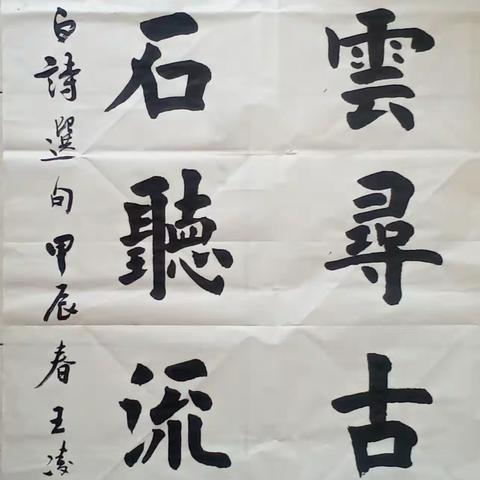 雲尋古
石聽流
白詩選句甲辰春王凌